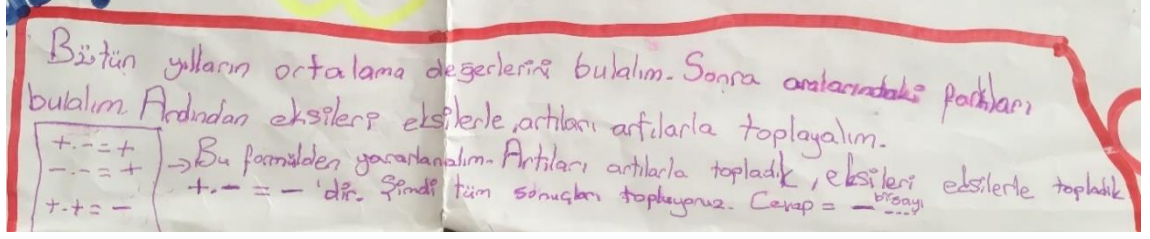 Bütün yılların ortalama değerlerini bulalım. Sonra aralarındaki farkları
bulalım. Ardından eksileri eksilerle, artıları artılarla toplayalım.
+.-=+
-.-=+
+.+=-
→ Bu formülden yararlanalım. Artıları artılarla topladık, eksileri eksilerle topladık
+.- = - 'dir. Şimdi tüm sonuçları topluyoruz. Cevap = - bir sayı